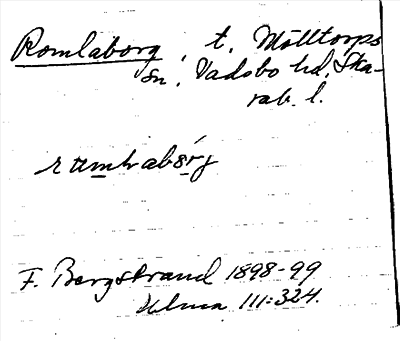 Romlaborg, t. Mölltorps
sn, Vadsbo hd, Ska-
rab. l.
rumlabórg
F. Bergstrand 1898-99
Ulma 111:324.